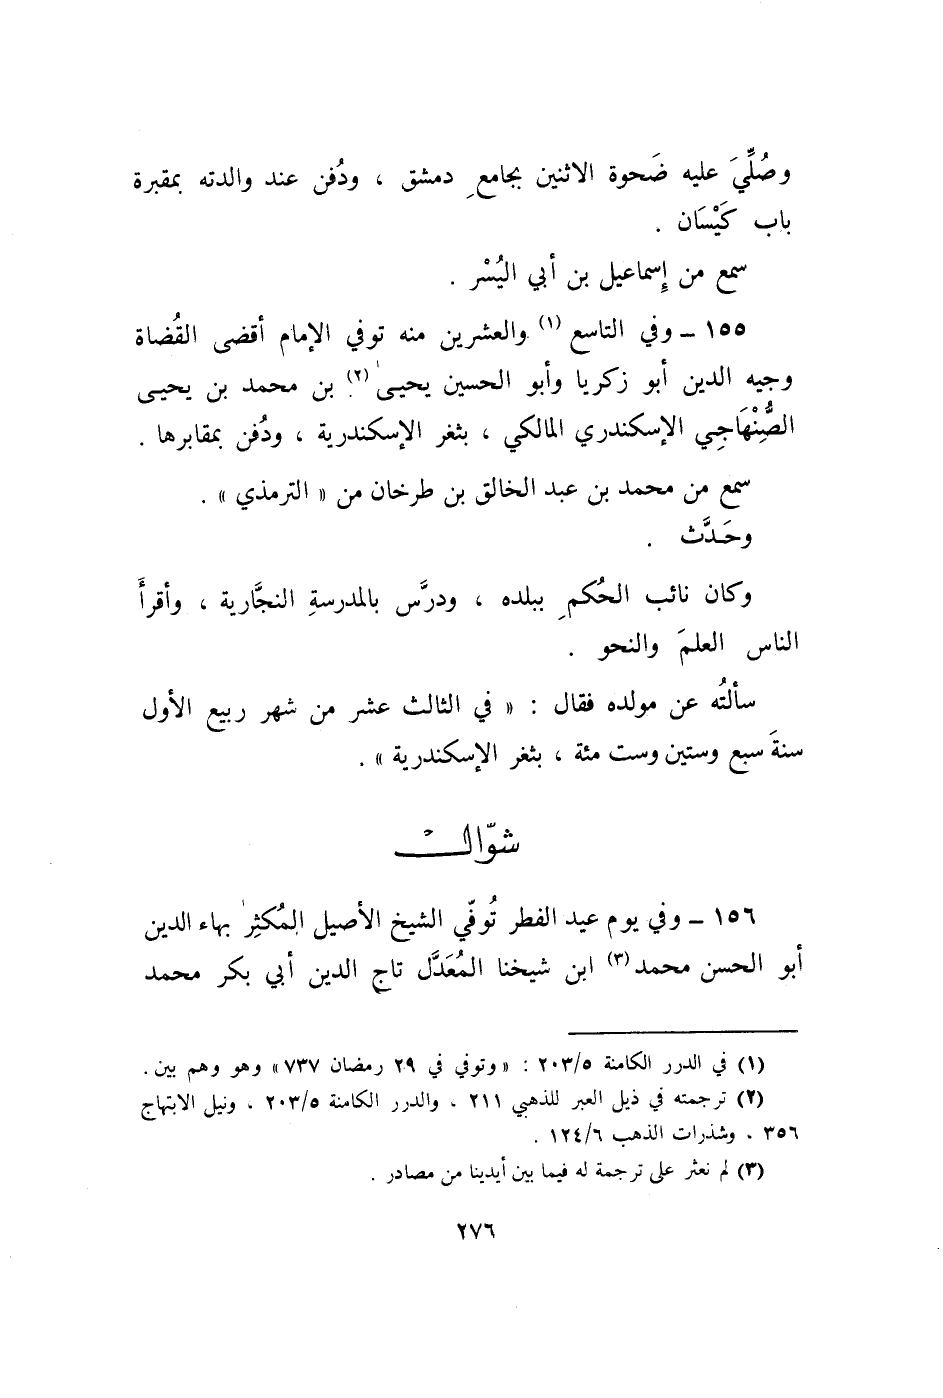 وصُلِّيَ عليه ضَحوة الاثنين بجامعِ دمشق ، ودُفن عند والدته بمقبرة
باب كَيْسَان .
سمع من إسماعيل بن أبي اليُسْر .
١٥٥ ـ وفي التاسع (١) والعشرين منه توفي الإمام أقضى القُضاة
وجيه الدين أبو زكريا وأبو الحسين يحيى (٢) بن محمد بن يحيى
الصُّنْهَاجِي الإسكندري المالكي ، بثغر الإسكندرية ، ودُفن بمقابرها .
سمع من محمد بن عبد الخالق بن طرخان من « الترمذي » .
وحَدَّث .
وكان نائب الحُكمِ ببلده ، ودرَّس بالمدرسةِ النجَّارية ، وأقرأَ
الناس العلمَ والنحو .
سألتُه عن مولده فقال : « في الثالث عشر من شهر ربيع الأول
سنةَ سبع وستين وست مئة ، بثغر الإسكندرية » .
شوّال
١٥٦ ـ وفي يوم عيد الفطر تُوفّي الشيخ الأصيل المُكثِر بهاء الدين
أبو الحسن محمد (٣) ابن شيخنا المُعَدَّل تاج الدين أبي بكر محمد
(١) في الدرر الكامنة ٢٠٣/٥ : « وتوفي في ٢٩ رمضان ٧٣٧ » وهو وهم بين .
(٢) ترجمته في ذيل العبر للذهبي ٢١١ ، والدرر الكامنة ٢٠٣/٥ ، ونيل الابتهاج
٣٥٦ ، وشذرات الذهب ١٢٤/٦ .
(٣) لم نعثر على ترجمة له فيما بين أيدينا من مصادر .
٢٧٦